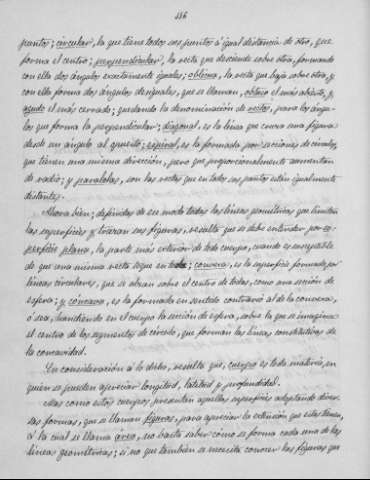 116
puntos; circular, la que tiene todos sus puntos á igual distancia de otro, que
forma el centro; perpendicular, la recta que desciende sobre otra, formando
con ella dos ángulos exactamente iguales; oblicua, la recta que baja sobre otra, y
con ella forma dos ángulos desiguales, que se llaman, obtuso el más abierto, y
agudo el más cerrado; quedando la denominación de rectos, para los ángu-
los que forma la perpendicular; diagonal, es la línea que cruza una figura
desde un ángulo al opuesto; espiral, es la formada por secciones de círculo,
que tienen una misma dirección, pero que proporcionalmente aumentan
de radio; y paralelas, son las rectas que en todos sus puntos están igualmente
distantes.
Ahora bien; definidas de ese modo todas las líneas geométricas que limitan
las superficies y trazan sus figuras, resulta que se debe entender por su-
perficie plana, la parte más exterior de todo cuerpo, cuando es susceptible
de que una misma recta toque en toda; convexa, es la superficie formada por
líneas circulares, que se alzan sobre el centro de todas, como una sección de
esfera; y cóncava, es la formada en sentido contrario al de la convexa,
ó sea, hundiendo en el cuerpo la sección de esfera, sobre la que se imagina
el centro de los segmentos de círculo, que forman las líneas constitutivas de
la concavidad.
En consideración á lo dicho, resulta que, cuerpo es toda materia, en
quien se pueden apreciar longitud, latitud y profundidad.
Mas como estos cuerpos presentan aquellas superficies adoptando diver-
sas formas, que se llaman figuras, para apreciar la extensión que estas tienen,
á la cual se llama área, no basta saber cómo se forma cada una de las
líneas geométricas; si no que también se necesita conocer las figuras que